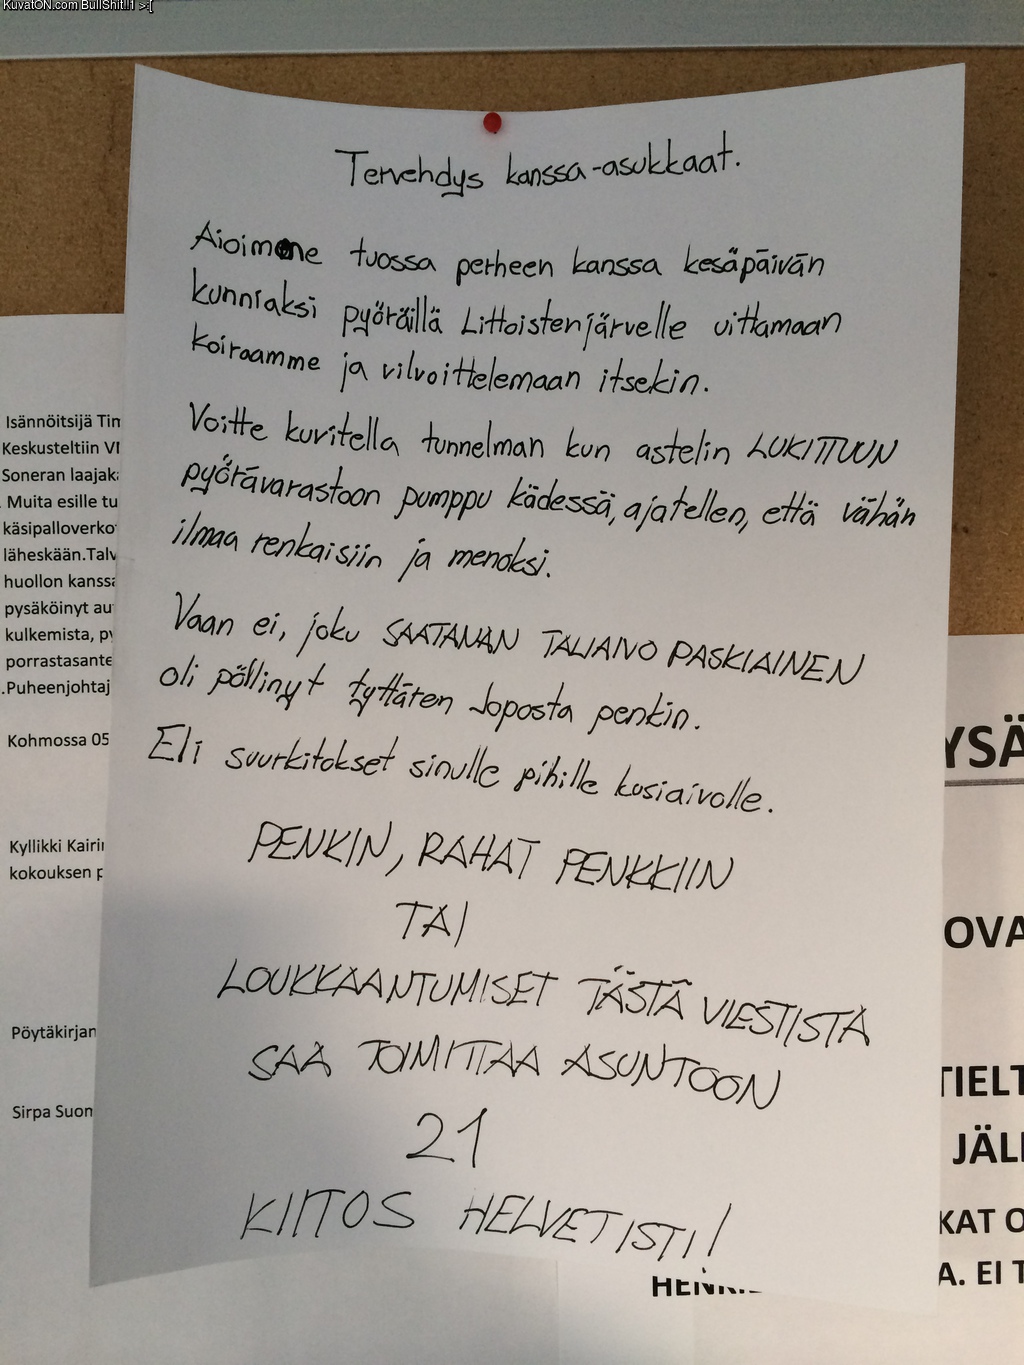 KuvatON.com BullShit!!1 >:[
Tervehdys kanssa-asukkaat.
Aioimme tuossa perheen kanssa kesäpäivän
kunniaksi pyöräillä Littoistenjärvelle uittamaan
koiraamme ja vilvoittelemaan itsekin.
Voitte kuvitella tunnelman kun astelin LUKITTUUN
pyörävarastoon pumppu kädessä, ajatellen, että vähän
ilmaa renkaisiin ja menoksi.
Vaan ei, joku SAATANAN TALIAIVO PASKIAINEN
oli pöllinyt tyttären Joposta penkin.
Eli suurkitokset sinulle pihille kusiaivolle.
PENKIN, RAHAT PENKKIIN
TAI
LOUKKAANTUMISET TÄSTÄ VIESTISTÄ
SAA TOIMITTAA ASUNTOON
21
KIITOS HELVETISTI!
Isännöitsijä Tim
Keskusteltiin VI
Soneran laajaka
. Muita esille tu
käsipalloverko
läheskään.Talv
huollon kanssa
pysäköinyt au
kulkemista, py
porrastasante
.Puheenjohtaj
Kohmossa 05
Kyllikki Kairi
kokouksen p
Pöytäkirjan
Sirpa Suon
YSÄ
OVA
TIELT
JÄLI
KAT O
A. EI T